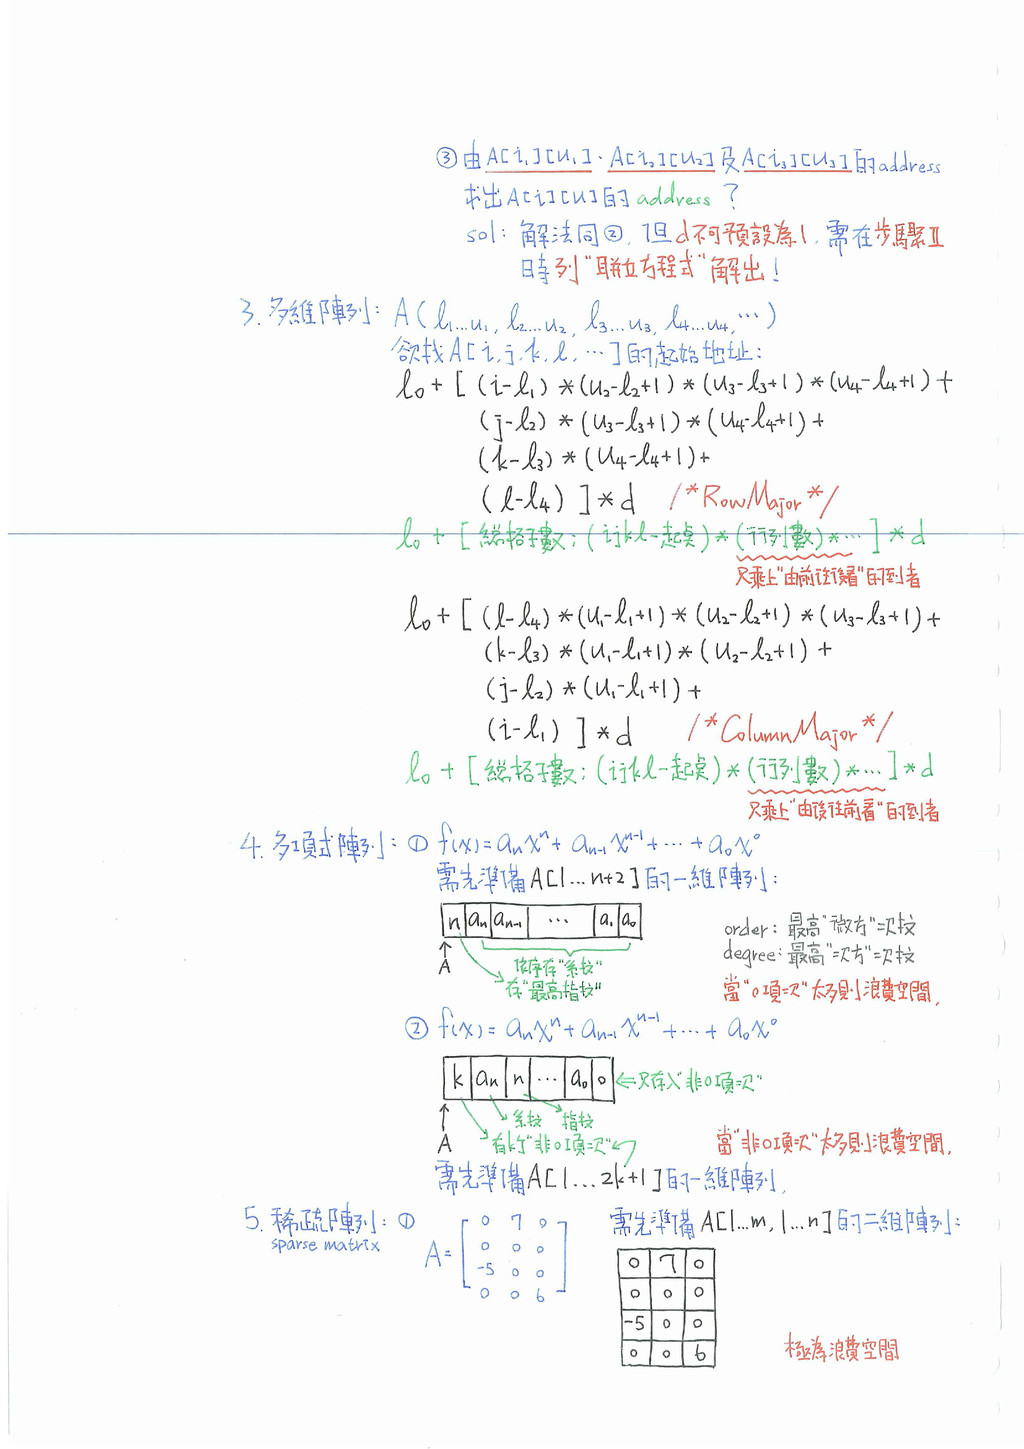 ③ 由A[i₁][u₁]、A[i₂][u₂]及A[i₃][u₃]的address
求出A[i][u]的address？
sol：解法同②，但d不可預設為1，需在步驟Ⅱ
時列"聯立方程式"解出！
3. 多維陣列：A(l₁...u₁, l₂...u₂, l₃...u₃, l₄...u₄, ⋯)
欲找A[i, j, k, l, ⋯]的起始地址：
l₀+[(i-l₁)*(u₂-l₂+1)*(u₃-l₃+1)*(u₄-l₄+1)+
(j-l₂)*(u₃-l₃+1)*(u₄-l₄+1)+
(k-l₃)*(u₄-l₄+1)+
(l-l₄)]*d /*RowMajor*/
l₀+[總格子數：(ijkl-起點)*(行列數)*⋯]*d
只乘上"由前往後看"的到者
l₀+[(l-l₄)*(u₁-l₁+1)*(u₂-l₂+1)*(u₃-l₃+1)+
(k-l₃)*(u₁-l₁+1)*(u₂-l₂+1)+
(j-l₂)*(u₁-l₁+1)+
(i-l₁)]*d /*ColumnMajor*/
l₀+[總格子數：(ijkl-起點)*(行列數)*⋯]*d
只乘上"由後往前看"的到者
4. 多項式陣列：① f(x)=aₙxⁿ+aₙ₋₁xⁿ⁻¹+⋯+a₀x⁰
需先準備A[1...n+2]的一維陣列：
n aₙ aₙ₋₁ ⋯ a₁ a₀
A
依序存"係數"
存"最高指數"
order：最高"微方"次數
degree：最高"次方"次數
當"0項次"太多則浪費空間，
② f(x)=aₙxⁿ+aₙ₋₁xⁿ⁻¹+⋯+a₀x⁰
k aₙ n ⋯ a₀ 0 ←只存入"非0項次"
A
係數 指數
有k個"非0項次"
當"非0項次"太多則浪費空間，
需先準備A[1...2k+1]的一維陣列，
5. 稀疏陣列：①
sparse matrix
A=
0 7 0
0 0 0
-5 0 0
0 0 6
需先準備A[1...m, 1...n]的二維陣列：
0 7 0
0 0 0
-5 0 0
0 0 6
極為浪費空間